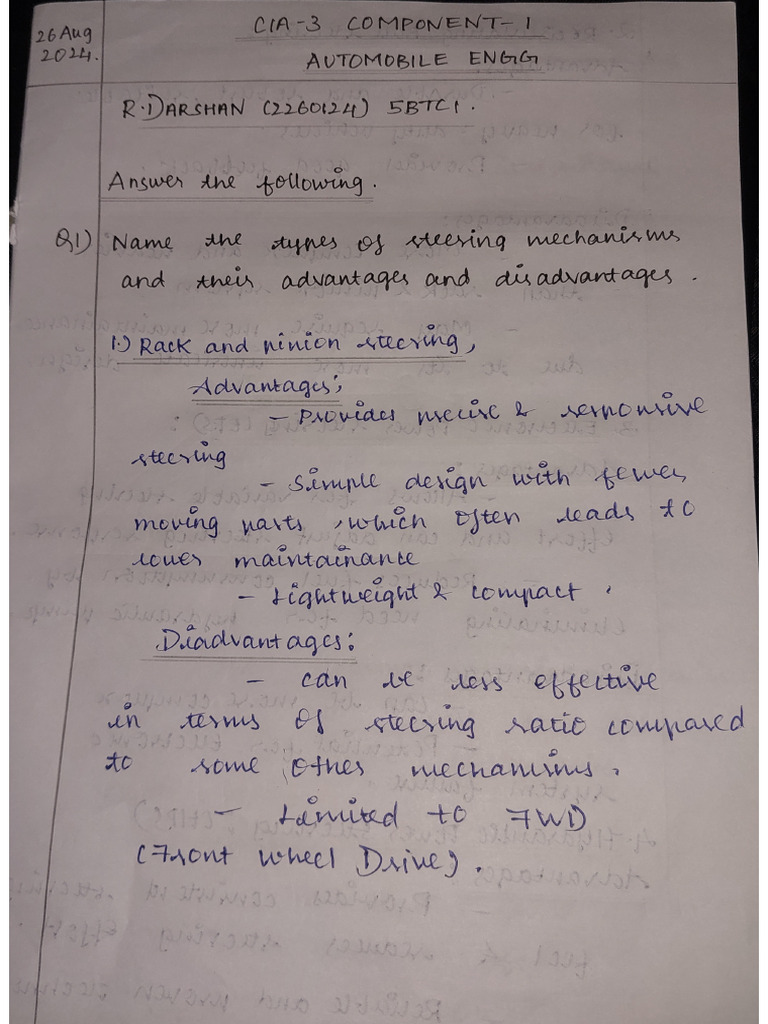 26 Aug
2024.
CIA-3 COMPONENT-1
AUTOMOBILE ENGG
R.DARSHAN (2260124) 5BTC1.
Answer the following.
Q1) Name the types of steering mechanisms
and their advantages and disadvantages.
1.) Rack and pinion steering,
Advantages;
- Provides precise & responsive
steering
- Simple design with fewer
moving parts, which often leads to
lower maintainance
- Lightweight & compact.
Diadvantages:
- can be less effective
in terms of steering ratio compared
to some other mechanisms.
- Limited to FWD
(Front Wheel Drive).